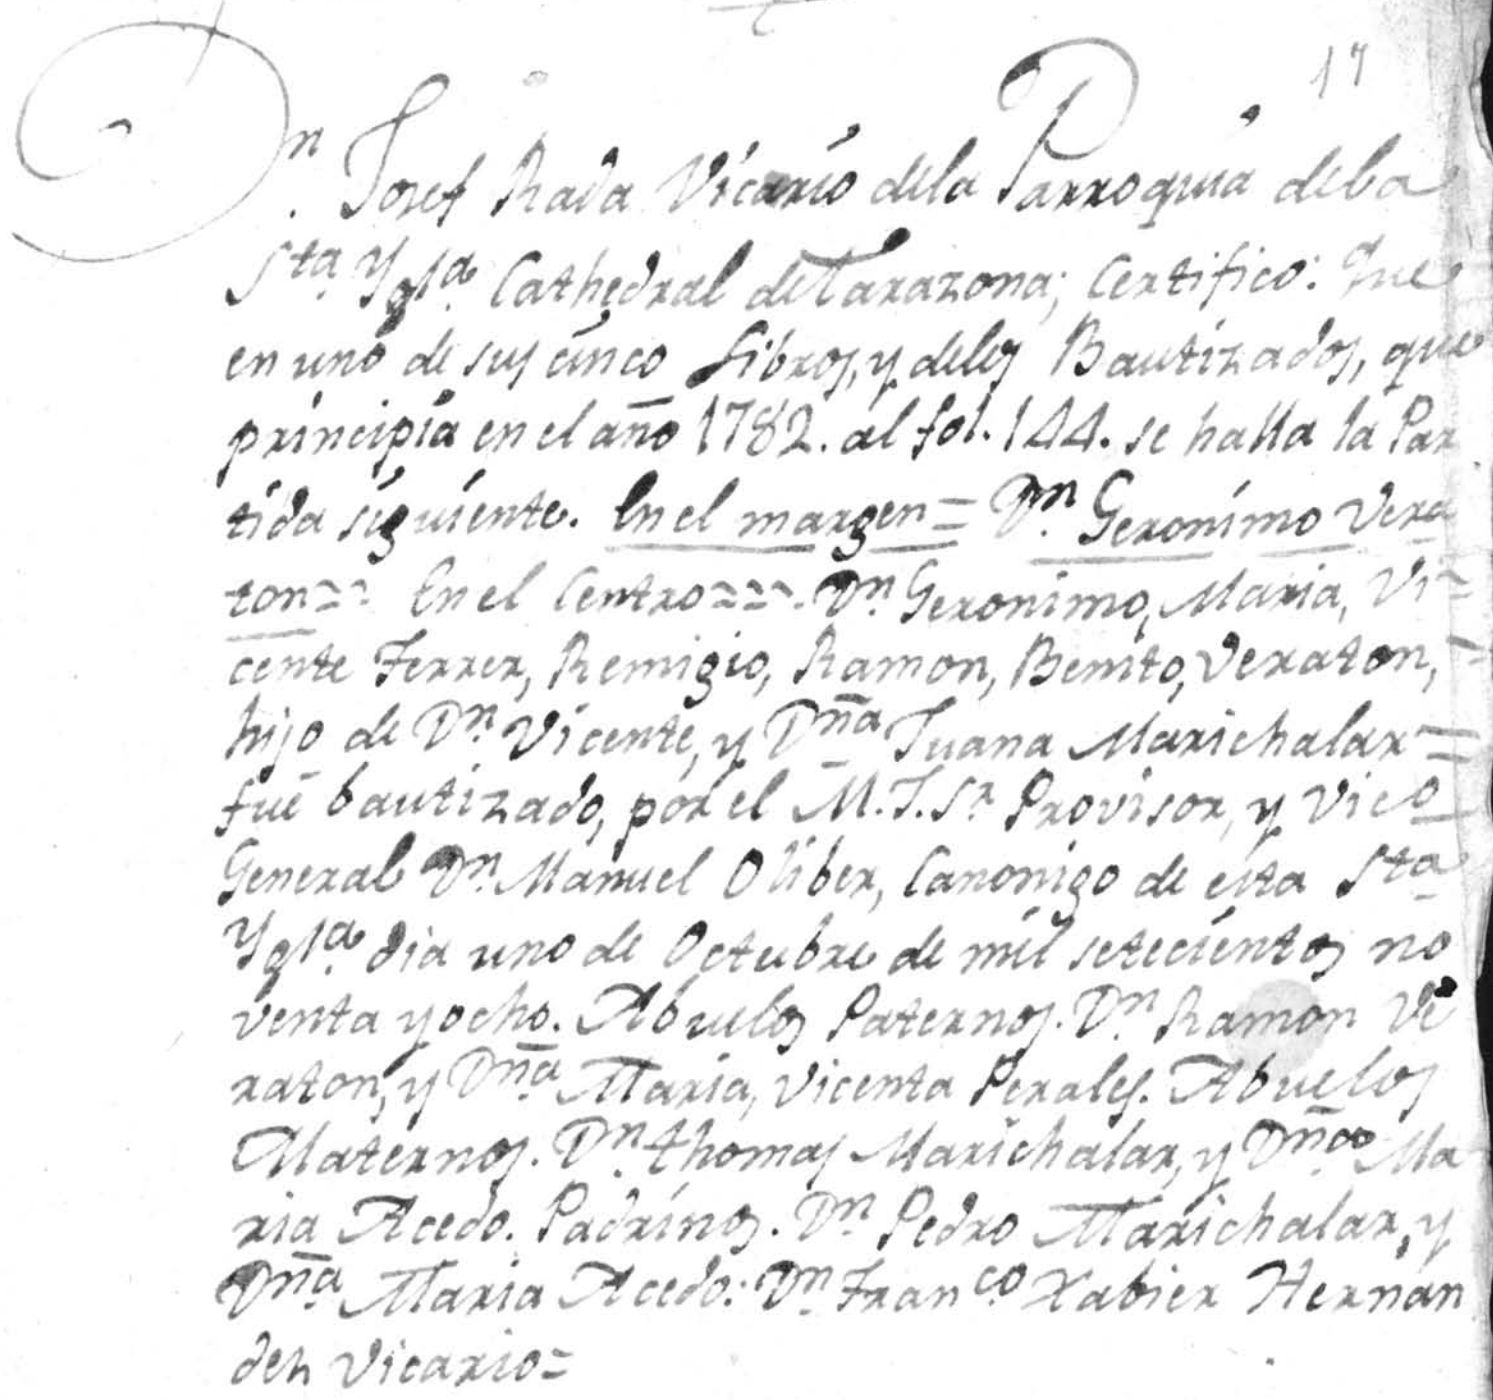 17
Dn. Josef Rada Vicario dela Parroquia dela
Sta. Ygla. Cathedral de Tarazona; Certifico: Que
en uno de sus cinco Libros, y delos Bautizados, que
principia en el año 1782. al fol. 144. se halla la Par
tida siguiente. En el margen = Dn. Geronimo Vera
ton == En el Centro === Dn. Geronimo, Maria, Vi=
cente Ferrer, Remigio, Ramon, Benito, Veraton,
hijo de Dn. Vicente, y Dña. Juana Marichalar =
fue bautizado, por el M. I. Sr. Provisor, y Vico
General Dn. Manuel Oliber, Canonigo de esta Sta
Ygla. dia uno de Octubre de mil setecientos no
venta y ocho. Abuelos Paternos. Dn. Ramon Ve
raton, y Dña. Maria, Vicenta Perales. Abuelos
Maternos. Dn. thomas Marichalar, y Dña. Ma
ria Acedo. Padrinos. Dn. Pedro Marichalar, y
Dña. Maria Acedo: Dn. Franco. Xabier Hernan
dez Vicario =